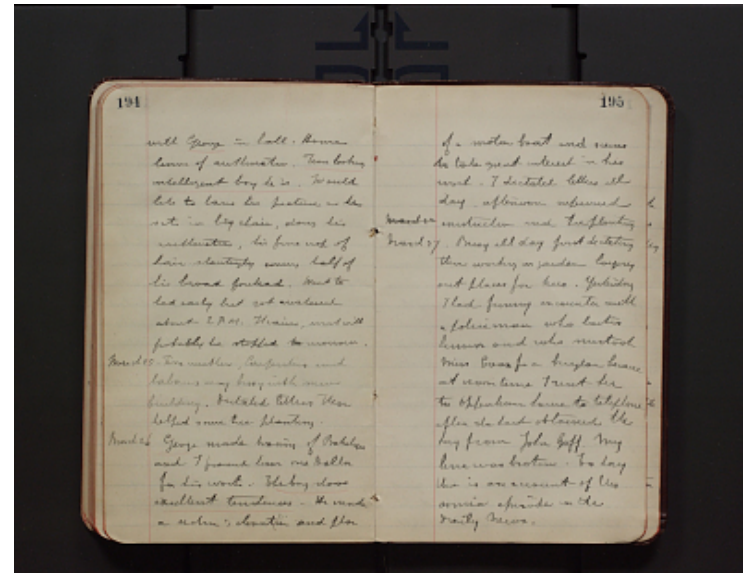 194
with George in ball. Home
lesson of arithmetic. Fine looking
intelligent boy he is. Would
like to have his picture as he
sits in big chair, doing his
arithmetic, his fine mop of
hair slantingly covers half of
his broad forehead. Went to
bed early but got awakened
about 2 P.M. It rains, work will
probably be stopped to-morrow.
March 25. Fine weather, Carpenters and
laborers busy with
building. Dictated letters then
helped some tree planting.
March 26 George made drawing of
and I presented him one Dollar
for his work. The boy shows
excellent tendencies. He made
a elevation and plan
195
of a motor boat and seems
to take great interest in his
work. I dictated letters all
day, afternoon supervised
construction and tree planting
March 27. Busy all day first dictating
then working in garden laying
out places for trees. Yesterday
I had funny encounter with
a policeman who lacks
humor and who mistook
Miss for a burglar because
at noon time I sent her
to Oppenheim house to telephone
after she had obtained the
key from John Goff. My
line was broken. To day
there is an account of this
comic episode in the
Daily News.